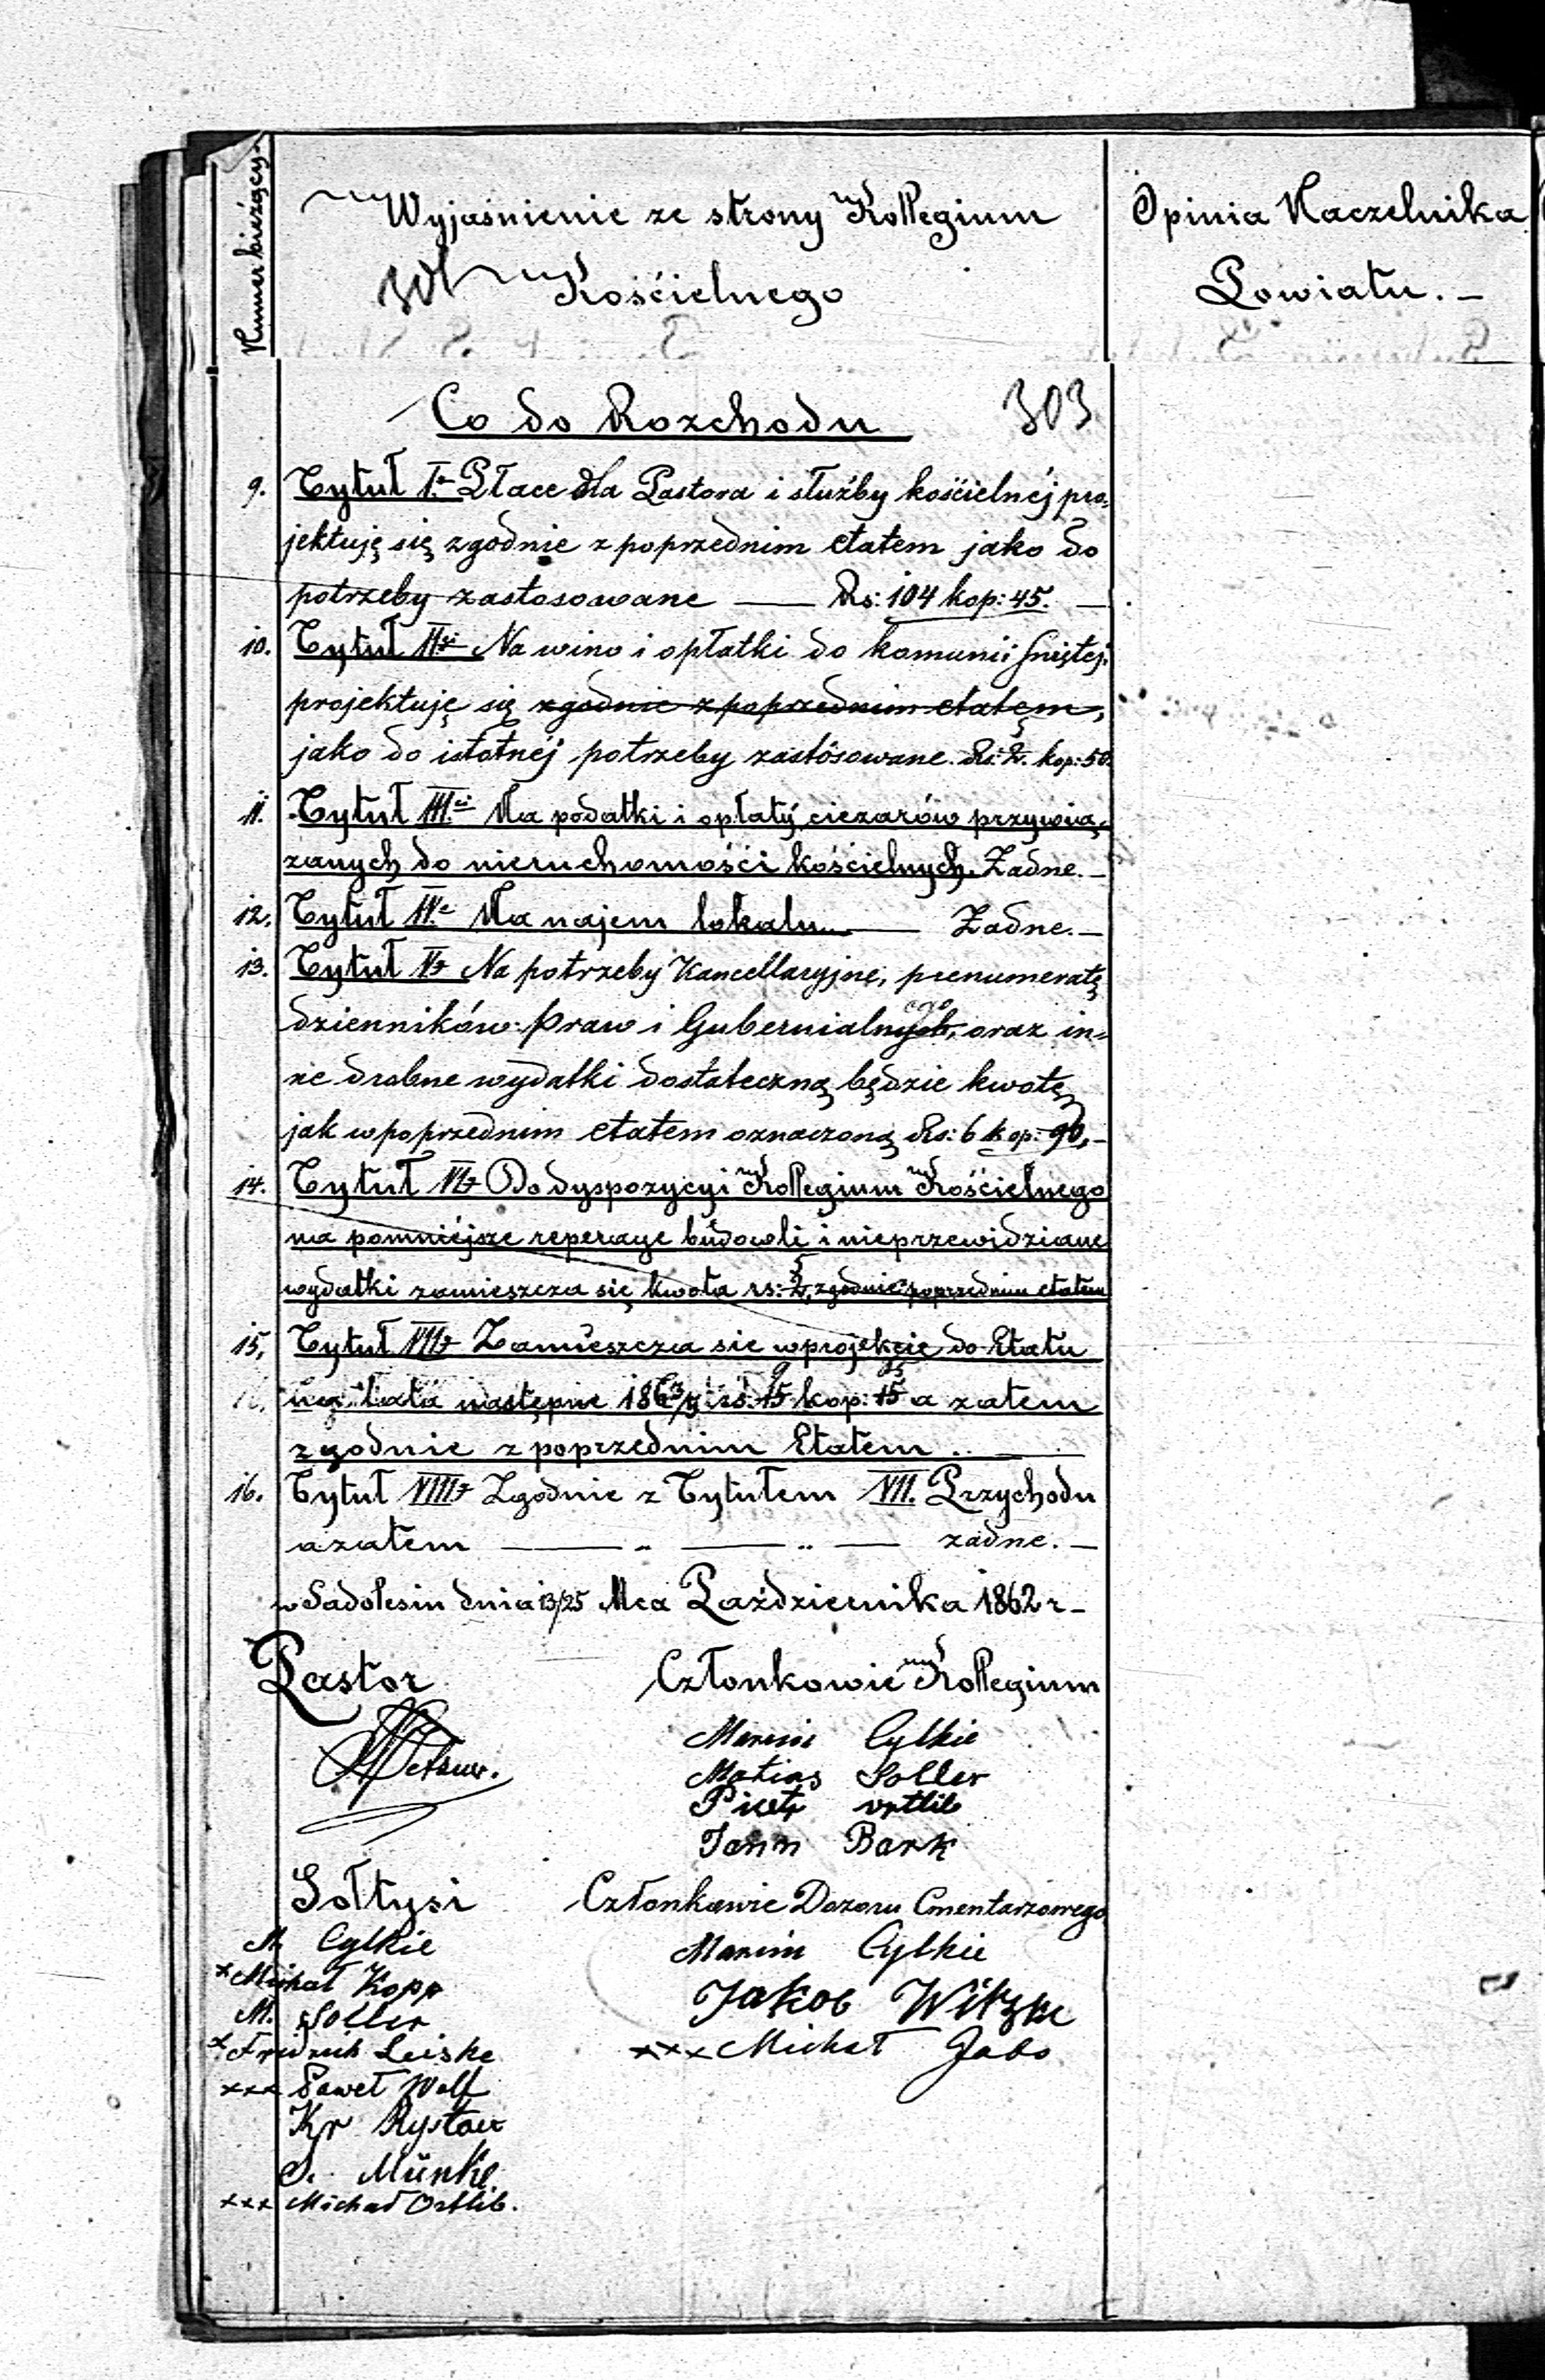 Numer bieżący.
Wyjaśnienie ze strony Kollegium
Kościelnego
Opinia Naczelnika
Powiatu. –
Co do Rozchodu
303
9. Tytuł I. Płace dla Pastora i służby kościelnéj pro-
jektuję się zgodnie z poprzednim etatem jako do
potrzeby zastosowane — Rs: 104 kop: 45. —
10. Tytuł II. Na wino i opłatki do komunii Śniętej.
projektuję się zgodnie z poprzednim etatem,
jako do istotnéj potrzeby zastósowane. Rs: 2. kop: 50.
11. Tytuł III.ci Na podatki i opłaty ciezarów przywią-
zanych do nieruchomośći kościelnych. Żadne. –
12. Tytuł IV. Na najem lokalu. — Żadne. –
13. Tytuł V. Na potrzeby Kancellaryjne, prenumeratę
dzienników: Praw i Gubernialnych, ego oraz in-
ne drobne wydatki dostateczną będzie kwotę
jak w poprzednim etatem oznaczoną Rs: 6 kop: 90, –
14. Tytuł VI. Do dyspozycyi Kollegium Kościelnego
na pomniéjsze reperacye budowli i nieprzewidziane
wydatki zamieszcza się kwota rs: 2, 5 zgodnie poprzednim etatem
15. Tytuł VII. Zamieszcza sie w projekcie do Etatu
na lata następne 1863/5 rs: 15 9 kop: 15 a zatem
zgodnie z poprzednim Etatem .. —
16. Tytuł VIII. Zgodnie z Tytułem VII. Przychodu
a zatem — .. — .. — żadne. –
w Sadolesiu dnia 13/25 Mca Października 1862 r –
Pastor
Członkowie Kollegium
Marcin Cylkie
Matias Soller
Piotr Ortlib
Jann Bark
Sołtysi
Członkowie Dozoru Cmentarzowego
M. Cylkie
Marcin Cylkie
x Michał Kopp
Jakob Witzke
M. Soller
xxx Michał Jabs
x Fridrich Leiske
xxx Paweł Wolf
Kr Rystau
S. Münke
xxx Michał Ortlib.